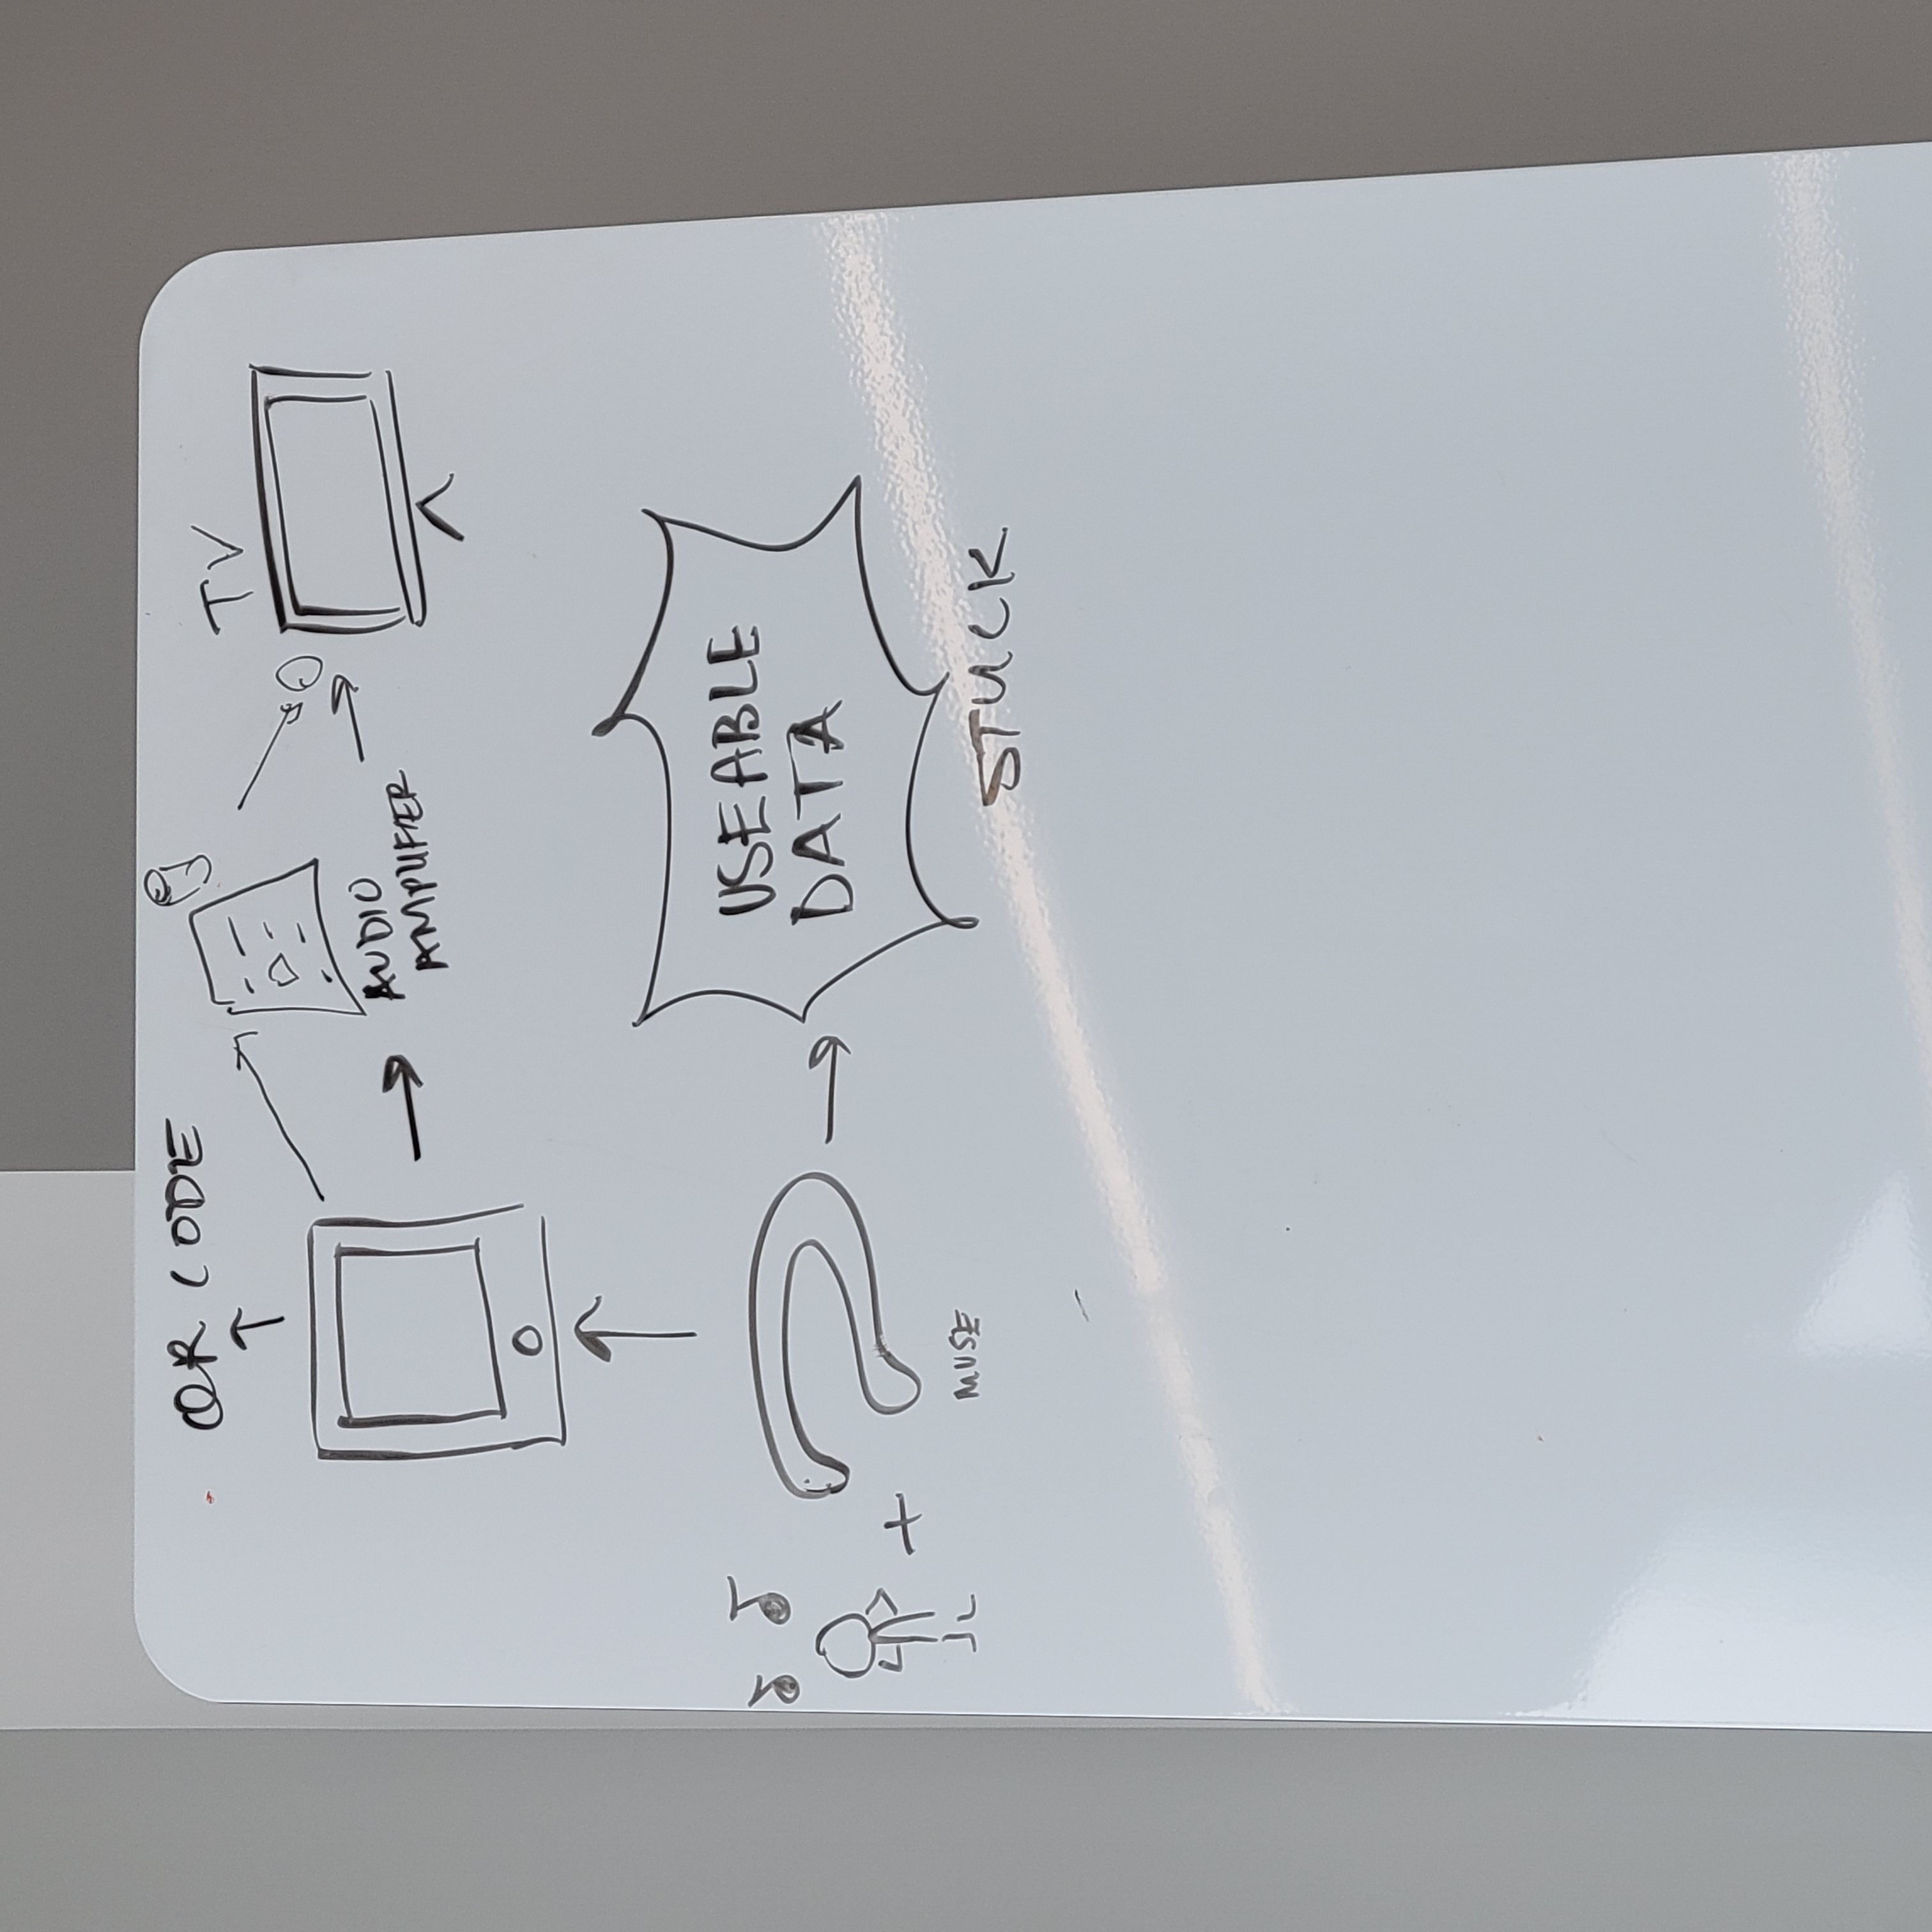 QR CODE
TV
AUDIO
AMPLIFIER
USEABLE
DATA
MUSE
STUCK